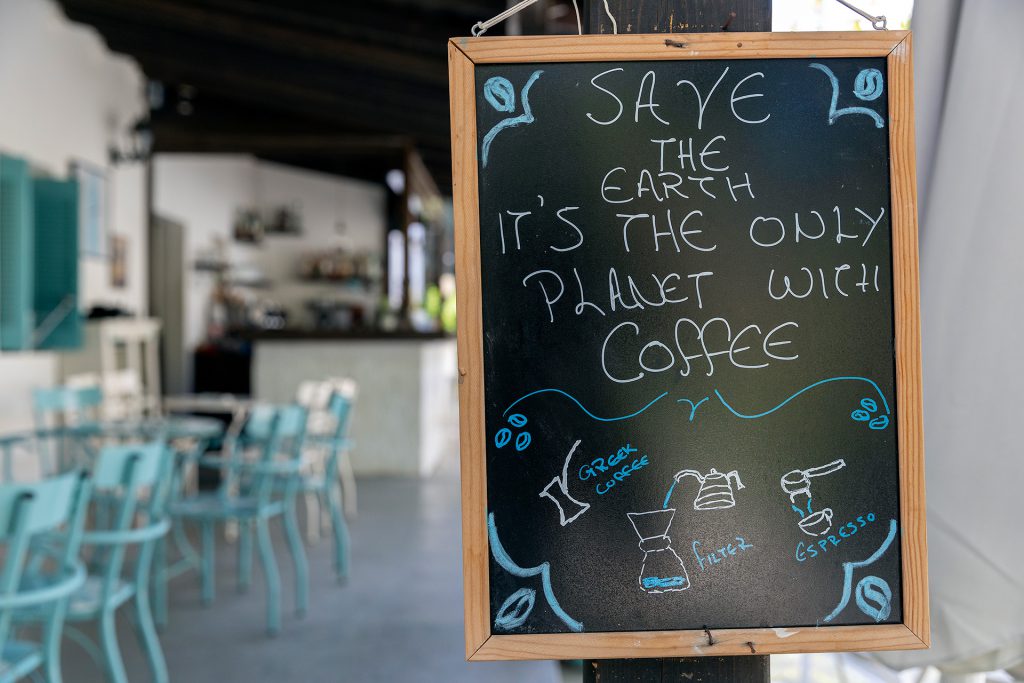 SAVE
THE
EARTH
IT'S THE ONLY
PLANET WITH
COFFEE
GREEK
COFFEE
FILTER
ESPRESSO